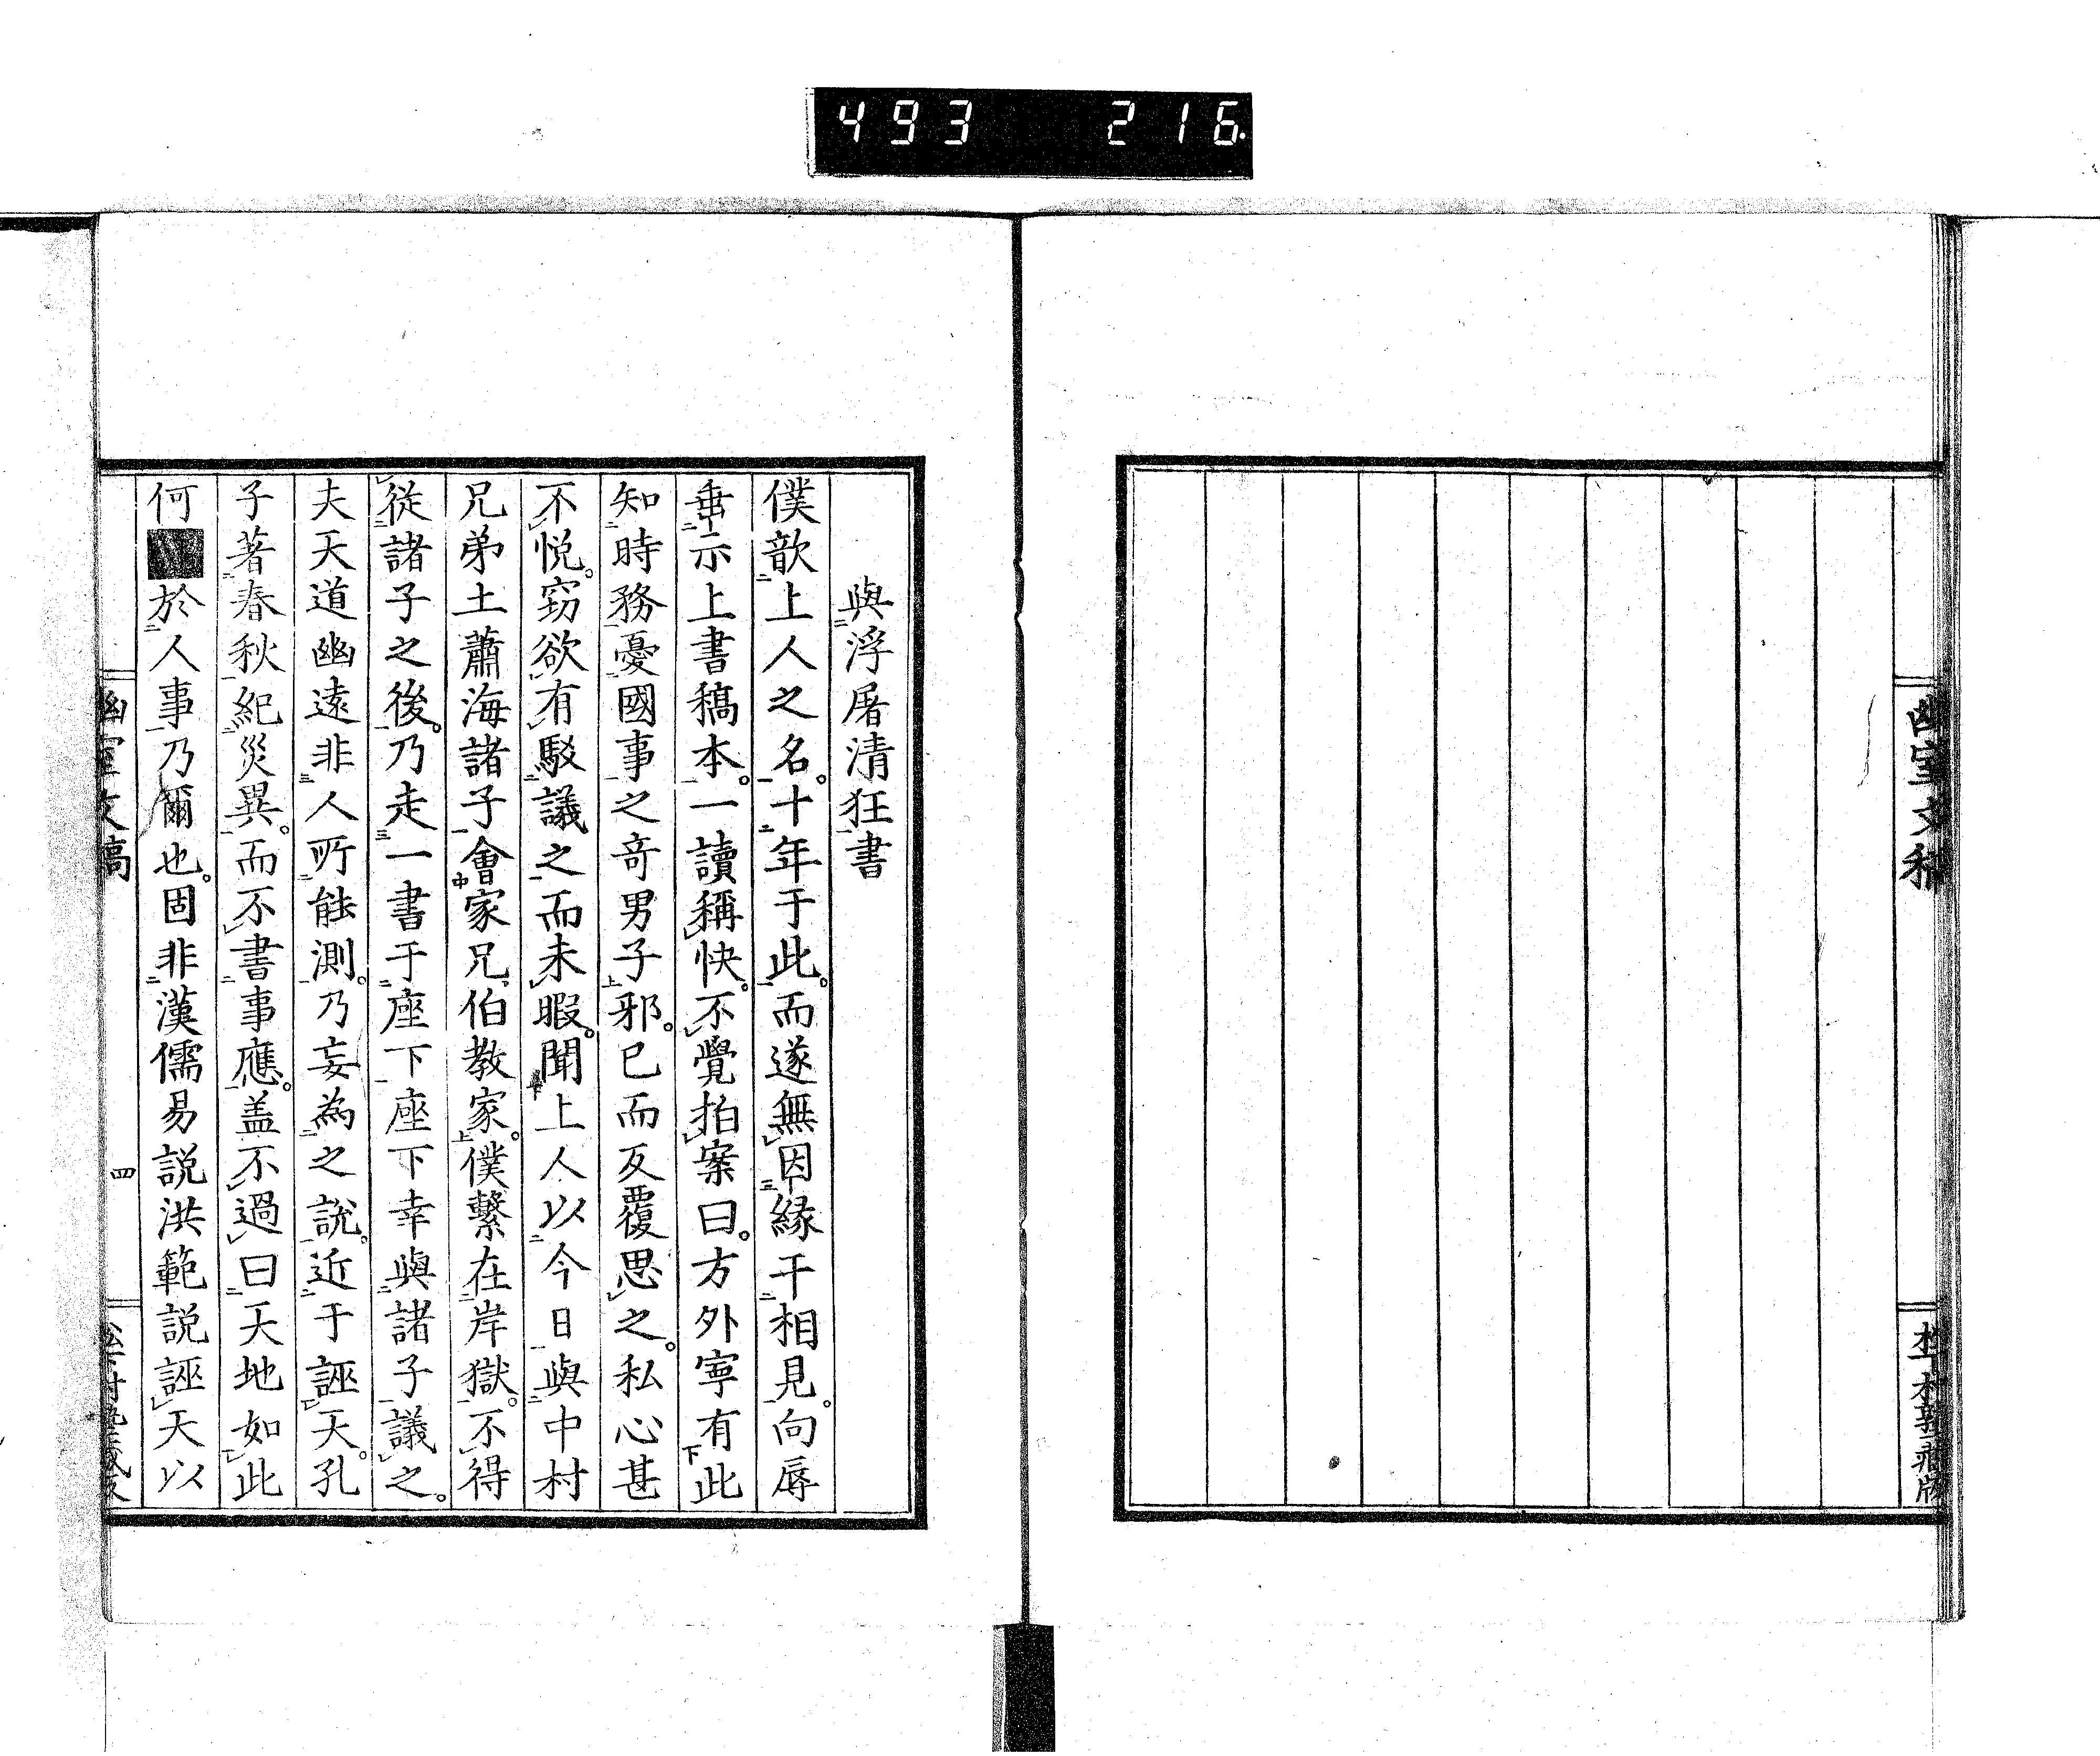 493 216
幽室文稿
與浮屠清狂書
僕歆上人之名。十年于此。而遂無因緣干相見。向辱
垂示上書稿本。一讀稱快。不覺拍案曰。方外寧有此
知時務憂國事之奇男子邪。已而反覆思之。私心甚
不悦。窃欲有駁議之而未暇。聞上人以今日與中村
兄弟土蕭海諸子會家兄伯教家。僕繫在岸獄。不得
從諸子之後。乃走一書于座下座下幸與諸子議之。
夫天道幽遠非人所能測。乃妄為之説。近于誣天。孔
子著春秋紀災異。而不書事應。盖不過曰天地如此
何 於人事乃爾也。固非漢儒易説洪範説誣天以
幽室文稿
四